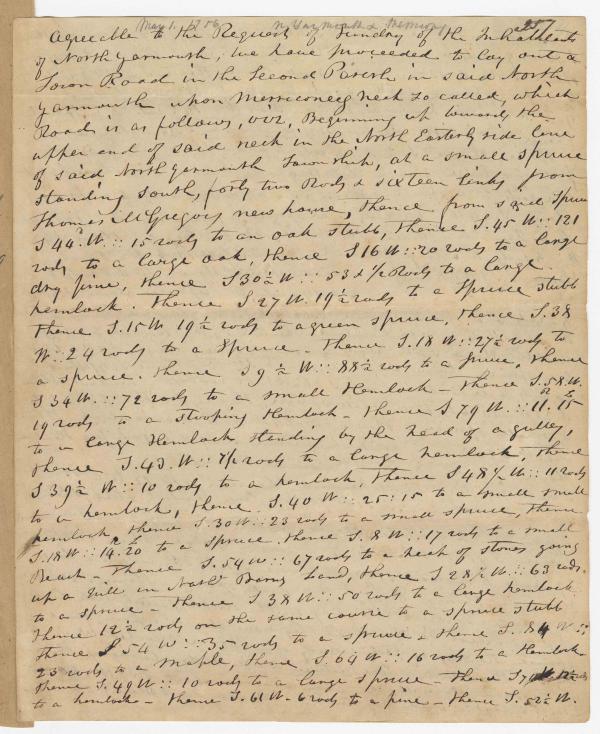 May 1. 1756 N Yarmouth & Memory 257
Agreeable to the Request of Sundry of the Inhabitants
of North Yarmouth, we have proceeded to lay out a
Town Road in the Second Parish in said North
Yarmouth upon Merriconeeg Neck so called, which
Road is as follows, viz, Beginning up towards the
upper end of said neck in the North Easterly side line
of said North Yarmouth Township, at a small spruce
standing south, forty two Rods & sixteen links from
Thomas McGregors new house, thence from said Spruce
S 44° W :: 15 rods to an oak stubb, thence S. 45 W :: 121
rods to a large oak, thence S 16 W :: 20 rods to a large
dry pine, thence S 30½ W :: 53 & ½ Rods to a large
hemlock. Thence S 27 W. 19½ rods to a Spruce stubb
thence S. 15 W 19½ rods to a green spruce, thence S. 38
W :: 24 rods to a Spruce - thence S. 18 W :: 27½ rods to
a spruce. thence S 9½ W :: 88½ rods to a pine, thence
S 34 W. :: 72 rods to a small Hemlock - thence S. 58. W.
19 rods to a stooping Hemlock - thence S 79 W. :: 11. 15
to a large Hemlock standing by the head of a gulley,
thence S. 43. W :: 7½ rods to a large hemlock, thence
S 39½ W :: 10 rods to a hemlock, thence S 48½ W :: 11 rods
to a hemlock, thence. S. 40 W :: 25 : 15 to a small small
hemlock, thence S. 30 W :: 23 rods to a small spruce, thence
S. 18 W :: 14. 20 to a spruce. thence S. 8 W :: 17 rods to a small
Beach - Thence S. 54 W :: 67 rods to a heap of stones going
up a hill in Nathl Barns Land, thence S 28½ W :: 63 rods.
to a spruce - thence S 38 W :: 50 rods to a large hemlock
thence 12½ rods on the same course to a spruce stubb
thence S 54 W :: 35 rods to a spruce - thence S. 84 W ::
23 rods to a maple, thence S. 64 W :: 16 rods to a Hemlock
thence S. 49 W :: 10 rods to a large spruce - thence S 70 W 12½ rods
to a hemlock - thence S. 61 W - 6 rods to a pine - thence S. 52½ W.